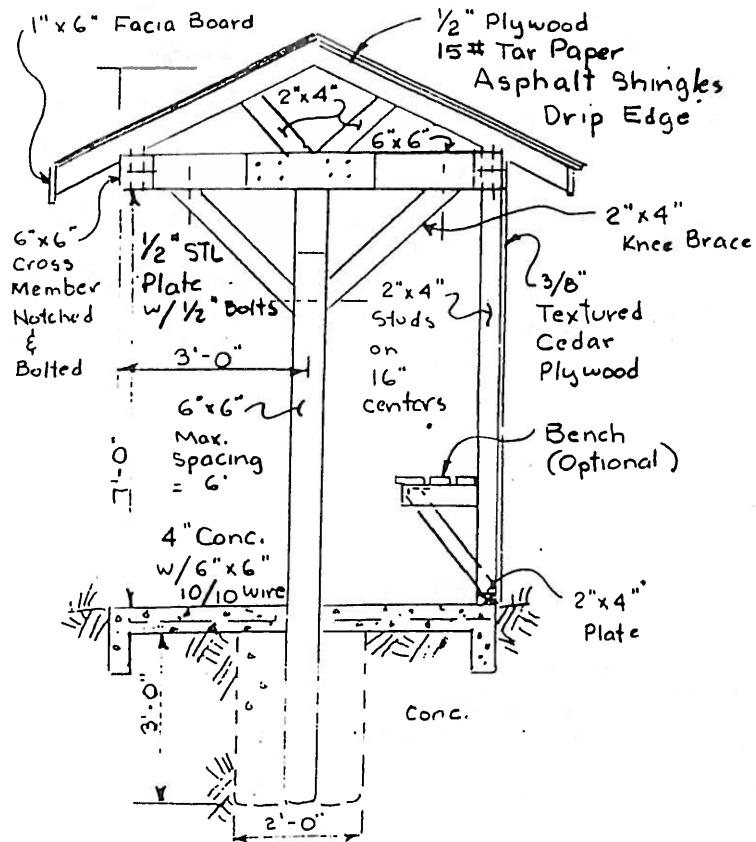 1"x6" Facia Board
1/2" Plywood
15# Tar Paper
Asphalt Shingles
Drip Edge
2"x4"
6"x6"
6"x6"
Cross
Member
Notched
&
Bolted
1/2" STL
Plate
w/ 1/2" Bolts
2"x4"
Knee Brace
3/8"
Textured
Cedar
Plywood
2"x4"
Studs
on
16"
Centers
3'-0"
6"x6"
Max.
Spacing
= 6'
7'-0"
Bench
(Optional)
4" Conc.
w/6"x6"
10/10 wire
2"x4"
Plate
3'-0"
Conc.
2'-0"